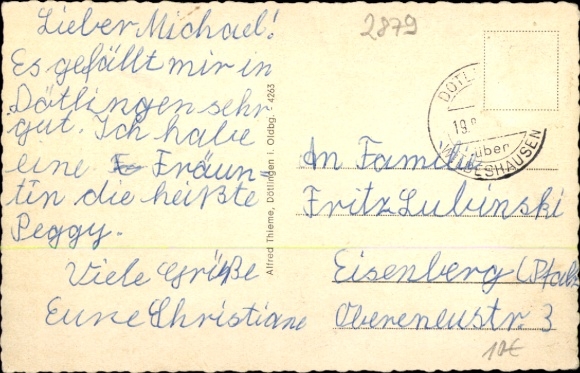 2879
Lieber Michael!
Es gefällt mir in
Dötlingen sehr
gut. Ich habe
eine Fräun-
tin die heißte
Peggy.
Viele Grüße
Eure Christiane
Alfred Thieme, Dötlingen i. Oldbg. · 4263
DÖTL
19.
über
WILDESHAUSEN
An Familie
Fritz Lubinski
Eisenberg (Pfalz
Oberen​eustr. 3
10€